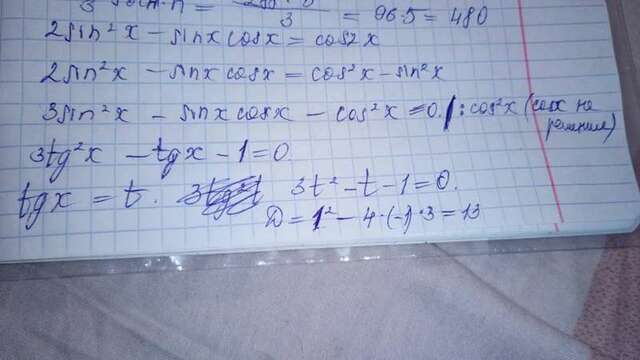 = 96·5 = 480
2sin²x - sinx cosx = cos2x
2sin²x - sinx cosx = cos²x - sin²x
3sin²x - sinx cosx - cos²x = 0. | : cos²x (cosx не
решение)
3tg²x - tgx - 1 = 0
tgx = t. 3t² - t - 1 = 0.
D = 1² - 4·(-1)·3 = 13